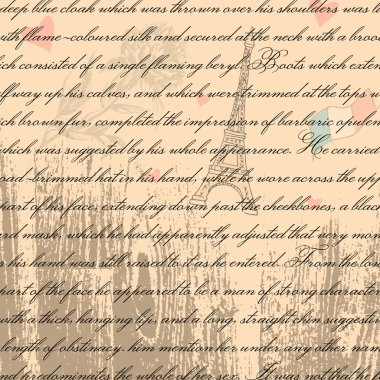 deep blue cloak which was thrown over his shoulders was li
with flame-coloured silk and secured at the neck with a brooc
ich consisted of a single flaming beryl. Boots which exten
lfway up his calves, and which were trimmed at the tops
ch brown fur, completed the impression of barbaric opulen
which was suggested by his whole appearance. He carried
oad-brimmed hat in his hand, while he wore across the upp
part of his face, extending down past the cheekbones, a black
ard mask, which he had apparently adjusted that very mom
hand was still raised to it as he entered. From the low
part of the face he appeared to be a man of strong character
with a thick, hanging lip, and a long, straight chin suggesti
length of obstinacy. him mention her under any other name
nd predominates the whole of her sex. It was not that he